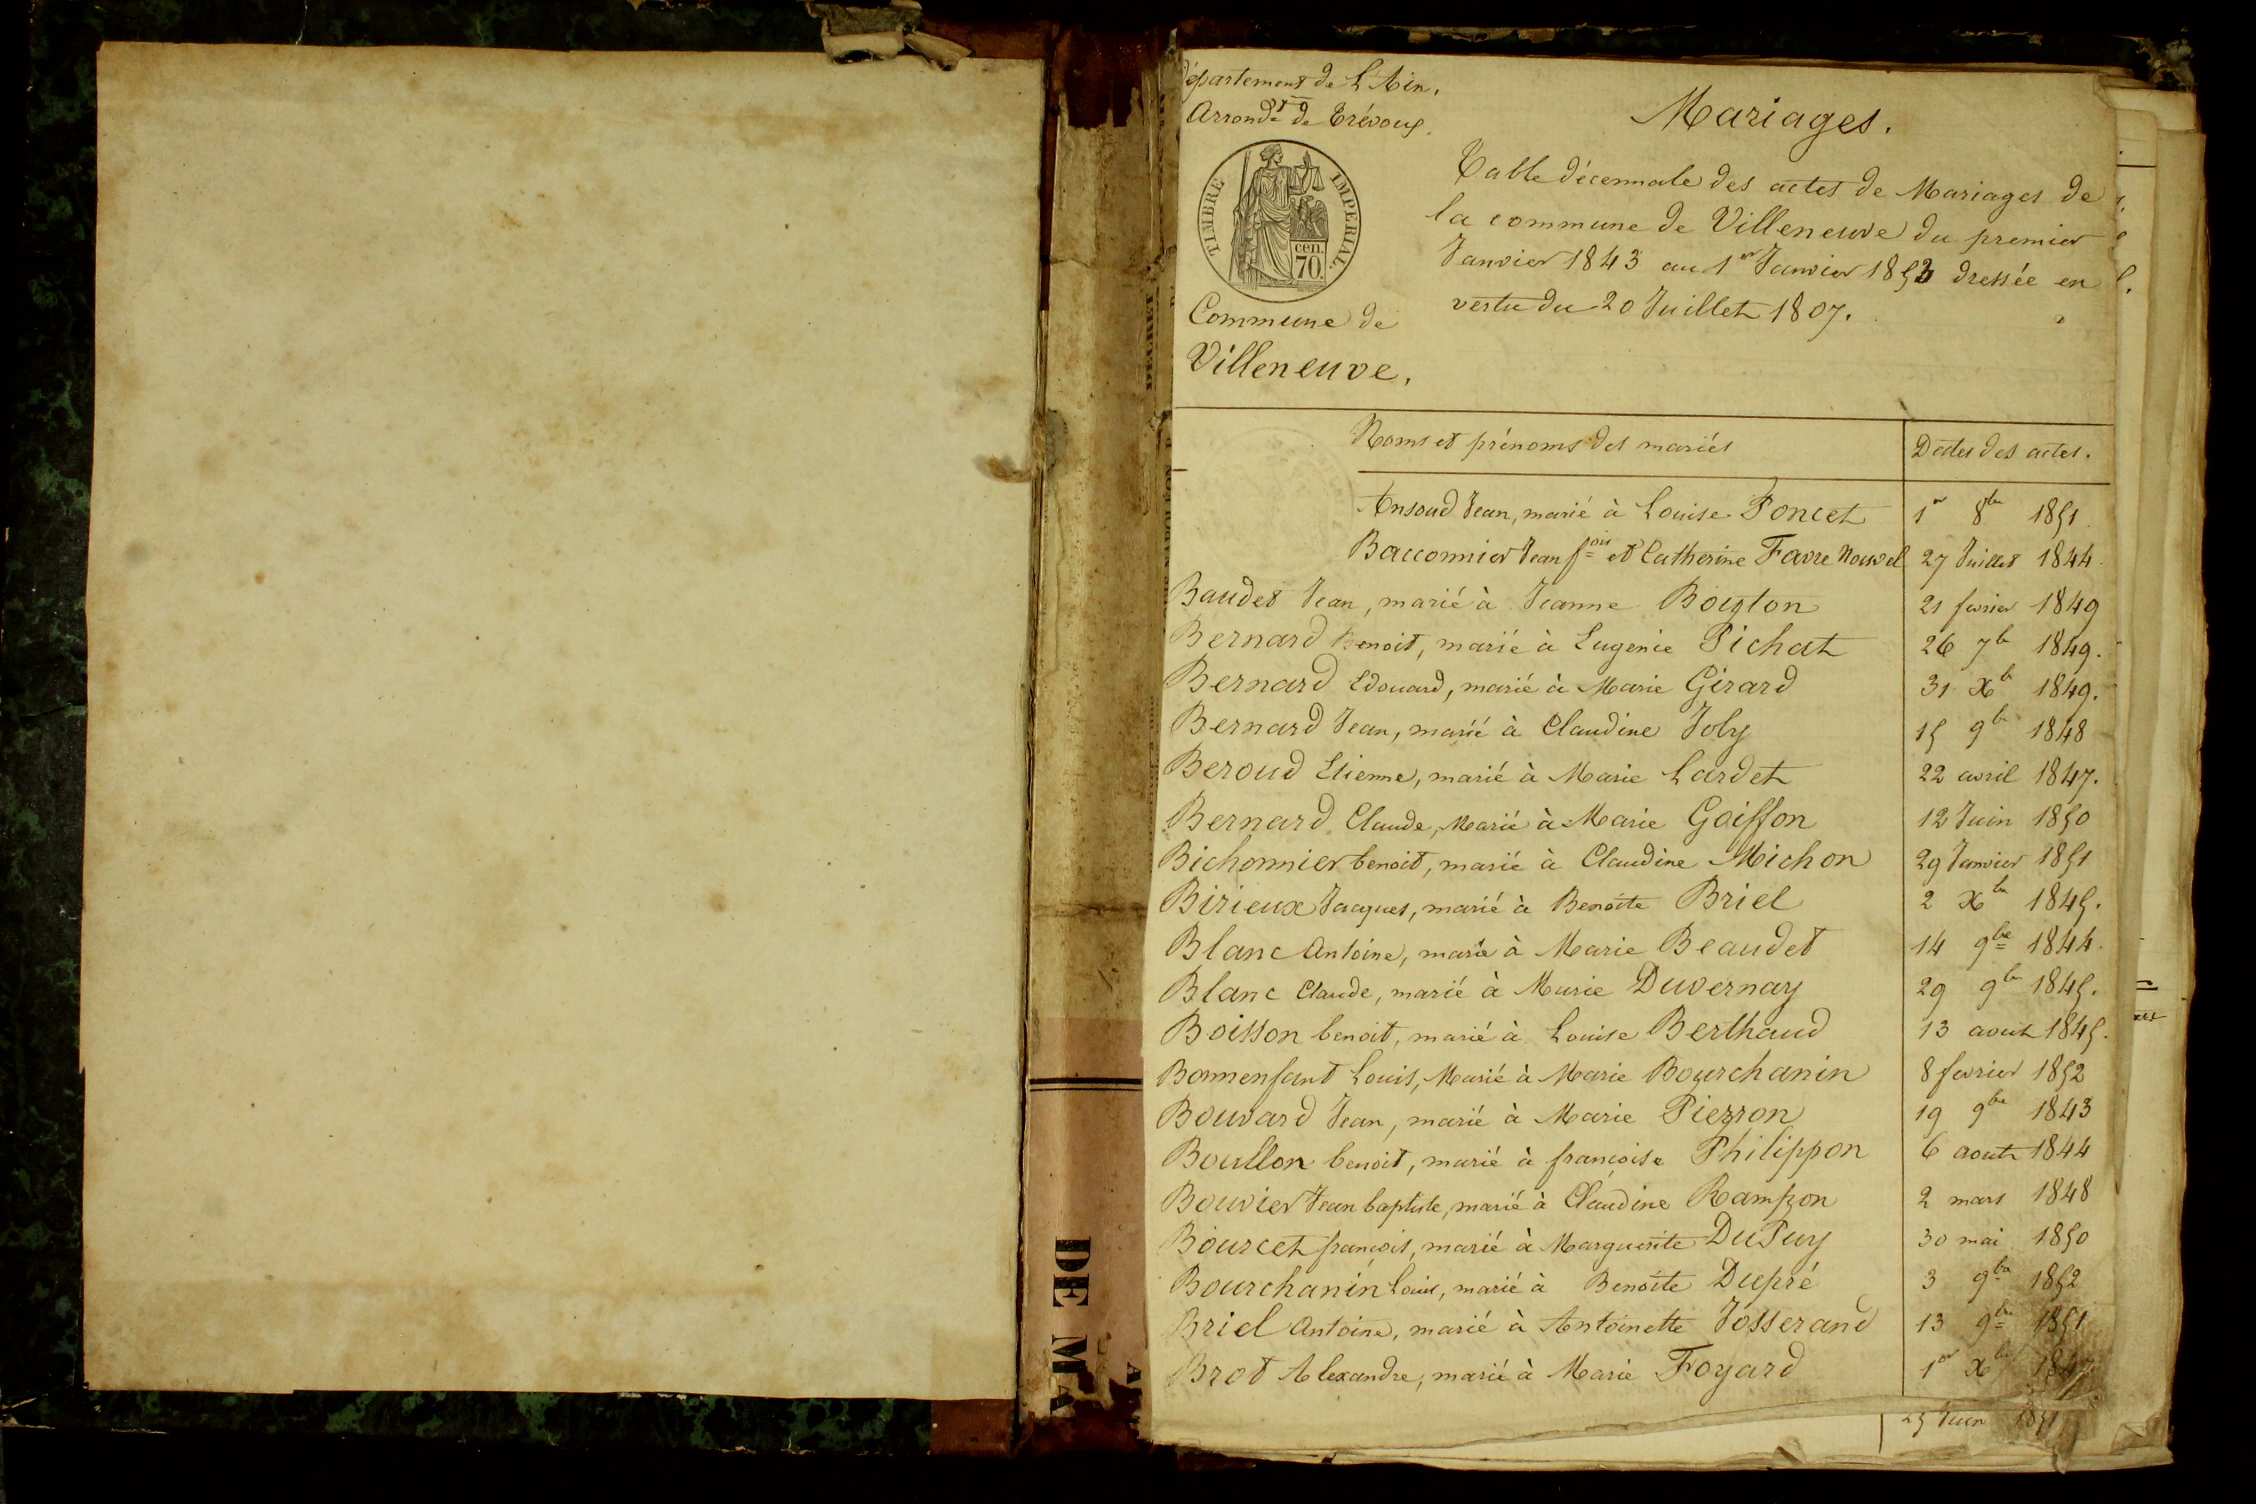 Département de L'Ain.
Arrondt de Trévoux.
TIMBRE IMPERIAL
cen.
70.
Commune de
Villeneuve.
Mariages.
Table décennale des actes de Mariages de
la commune de Villeneuve du premier
Janvier 1843 au 1er Janvier 1853 dressée en
vertu du 20 Juillet 1807.
Noms et prénoms des mariés
Dates des actes.
Ansoud Jean, marié à Louise Poncet 1er 8bre 1851
Bacconnier Jean fois et Catherine Favre Nouvel 27 Juillet 1844.
Baudet Jean, marié à Jeanne Boigton 21 fevrier 1849
Bernard Benoit, marié à Eugenie Pichat 26 7b 1849.
Bernard Edouard, marié à Marie Girard 31 Xb 1849.
Bernard Jean, marié à Claudine Joly 15 9b 1848
Beroud Etienne, marié à Marie Lardet 22 avril 1847.
Bernard Claude, Marié à Marie Goiffon 12 Juin 1850
Bichonnier benoit, marié à Claudine Michon 29 Janvier 1851
Birieux Jacques, marié à Benoite Briel 2 Xbre 1845.
Blanc Antoine, marié à Marie Beaudet 14 9bre 1844.
Blanc Claude, marié à Marie Duvernay 29 9bre 1845.
Boisson benoit, marié à Louise Berthaud 13 aout 1845.
Bonnenfant Louis, Marié à Marie Bourchanin 8 fevrier 1852
Bouvard Jean, marié à Marie Pierron 19 9bre 1843
Boullon benoit, marié à françoise Philippon 6 aout 1844
Bouvier Jean baptiste, marié à Claudine Rampon 2 mars 1848
Bourcet françois, marié à Marguerite DuPuy 30 mai 1850
Bourchanin Louis, marié à Benoite Dupré 3 9bre 1852
Briel Antoine, marié à Antoinette Josserand 13 9bre 1851
Brot Alexandre, marié à Marie Foyard 1er Xbre 1847
25 Juin 1851
DE MA